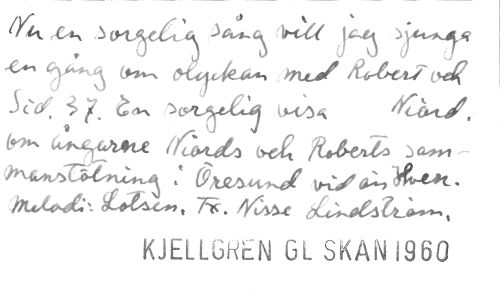 Nu en sorgelig sång vill jag sjunga
en gång om olyckan med Robert och
Sid. 37. En sorgelig visa Niord.
om ångarne Niords och Roberts sam-
manstötning i Öresund vid ön Hven.
Melodi: Lotsen. Tx. Nisse Lindström.
KJELLGREN GL SKAN 1960